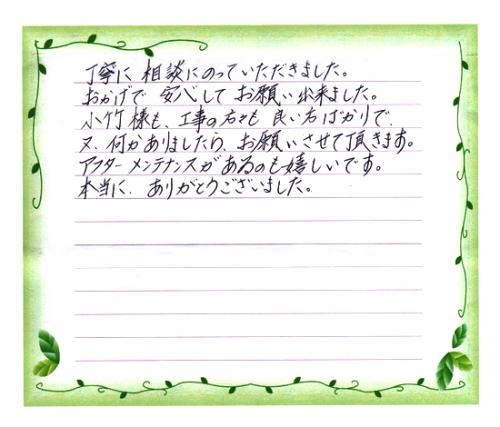 丁寧に相談にのっていただきました。
おかげで安心してお願い出来ました。
小竹様も、工事の方々も良い方ばかりで、
又、何かありましたら、お願いさせて頂きます。
アフターメンテナンスがあるのも嬉しいです。
本当に、ありがとうございました。